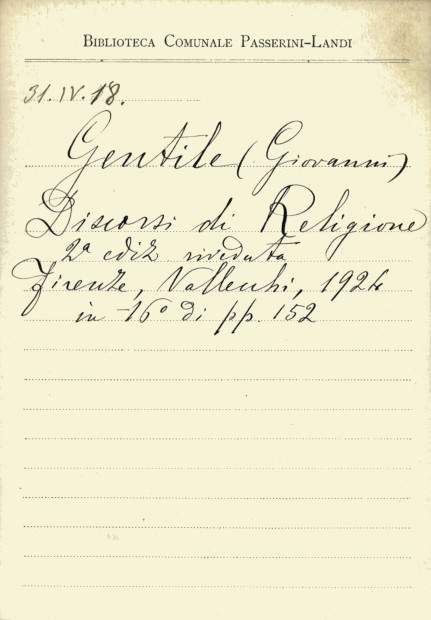 BIBLIOTECA COMUNALE PASSERINI-LANDI
31.IV.18.
Gentile (Giovanni)
Discorsi di Religione
2ª ediz riveduta
Firenze, Vallechi, 1924
in -16º di pp. 152